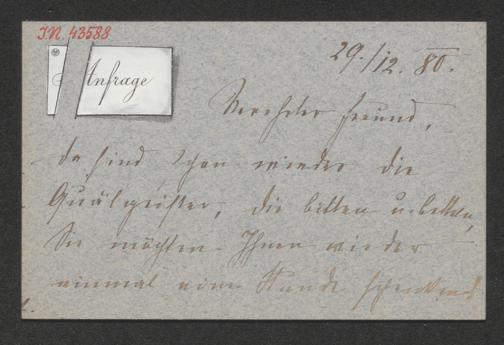 I.N. 43588
Anfrage
29./12. 80.
Verehrter Freund,
da sind schon wieder die
Quälgeister, die bitten u. betteln,
Sie möchten Ihnen wieder
einmal eine Stunde schenken